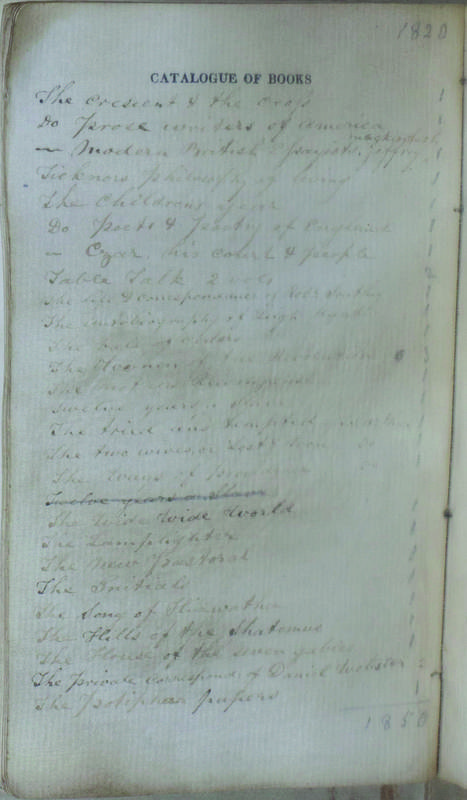 1820
CATALOGUE OF BOOKS
The Crescent & the Cross 1
Do Prose writers of America 1
Mackintosh
— Modern British Essayists, Jeffrey 1
Ticknors philosophy of living 1
The Childrens year 1
Do Poets & Poetry of England 1
— Czar, his court & people 1
Table Talk 2 vols 2
The life & correspondence of Robt Southey
The autobiography of Leigh Hunt
The of
The Women of the Revolution 3
The
Twelve years a Slave
The tried and tempted
The two wives, or lost & won Do
The Ways of Providence Do
Twelve years a Slave
The Wide Wide World 1
The Lamplighter 1
The New Pastoral 1
The Initials 1
The Song of Hiawatha 1
The Hills of the Shatemuc 1
The House of the seven gables 1
The private correspond: of Daniel Webster 2
The Potiphar papers 1
1850